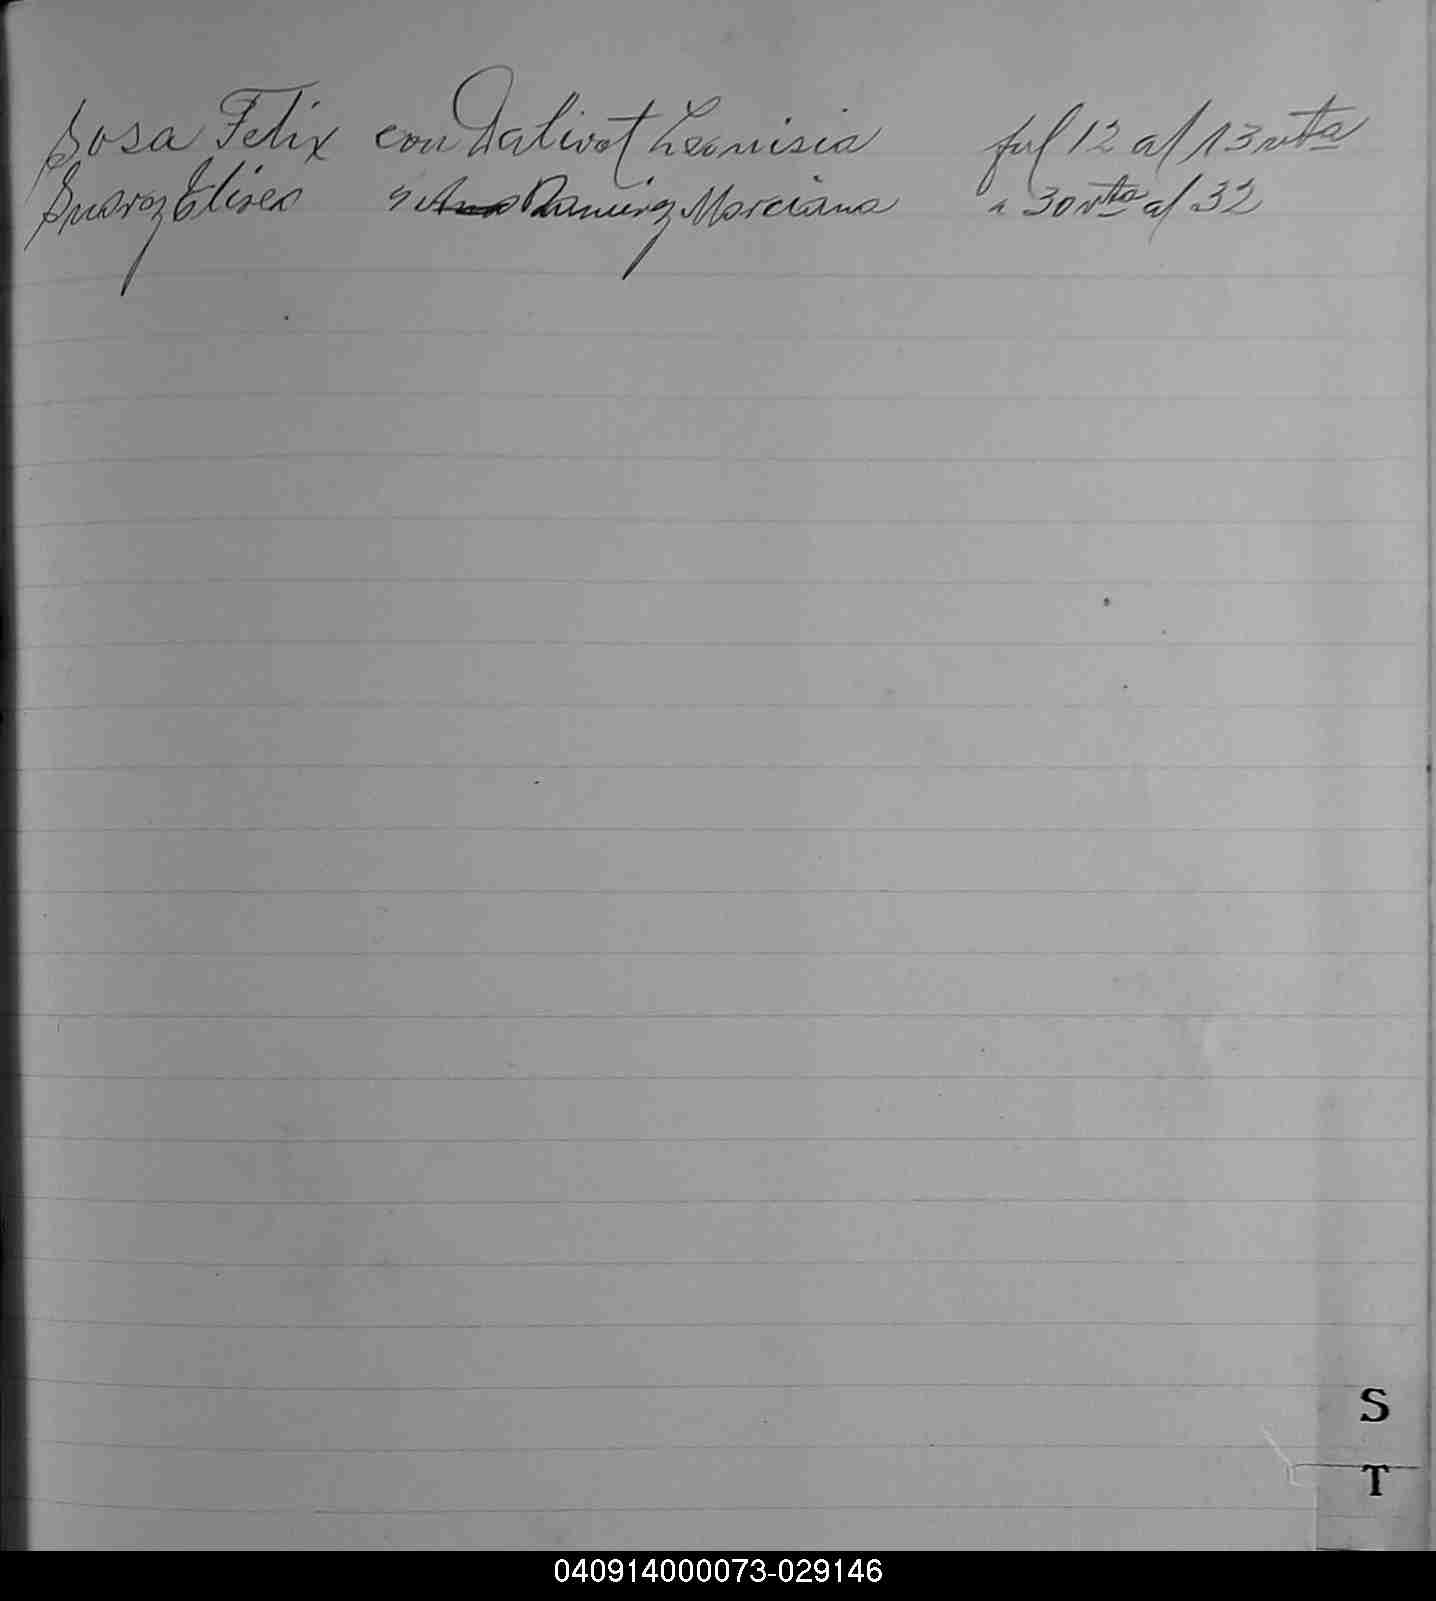 Sosa Felix con Dalivot Leonisia ful 12 al 13 vta
Suarez Eliseo " Ramirez Marciana " 30 vta al 32
S
T
040914000073-029146